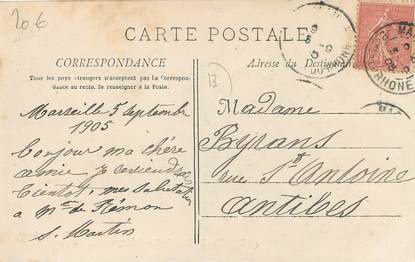 20 €
CARTE POSTALE
CORRESPONDANCE
Tous les pays étrangers n'acceptent pas la Correspon-
dance au recto. Se renseigner à la Poste.
Adresse du Destinataire
13
Marseille 5 septembre
1905
Toujour ma chère
amie je reviendrai
bientôt, mes salutation
a Mme de Rémon
S. Martin
Madame
Byrans
rue St Antoine
Antibes
DU RHONE
RHONE